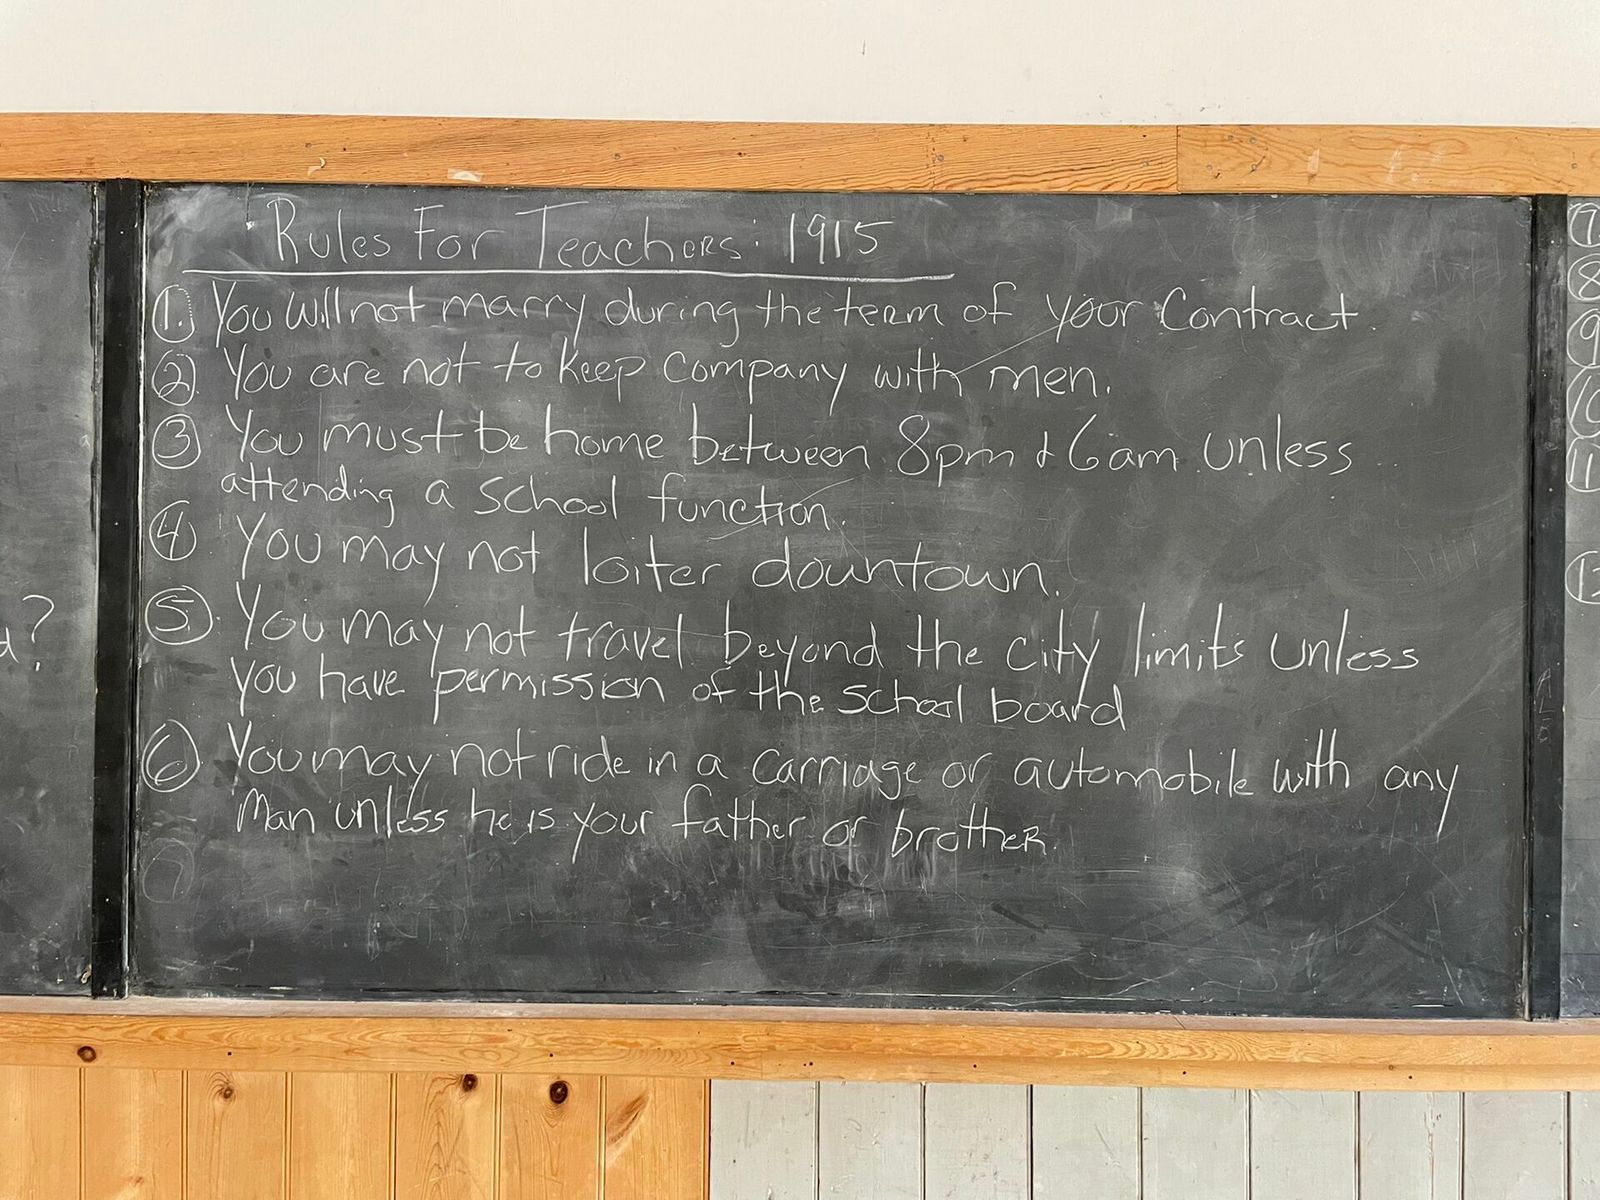 d?
Rules For Teachers: 1915
1. You will not marry during the term of your Contract.
2. You are not to keep company with men.
3 You must be home between 8pm & 6am unless
attending a school function.
4 You may not loiter downtown.
5. You may not travel beyond the city limits unless
you have permission of the school board
6 You may not ride in a carriage or automobile with any
Man unless he is your father or brother.
7
8
9
10
11